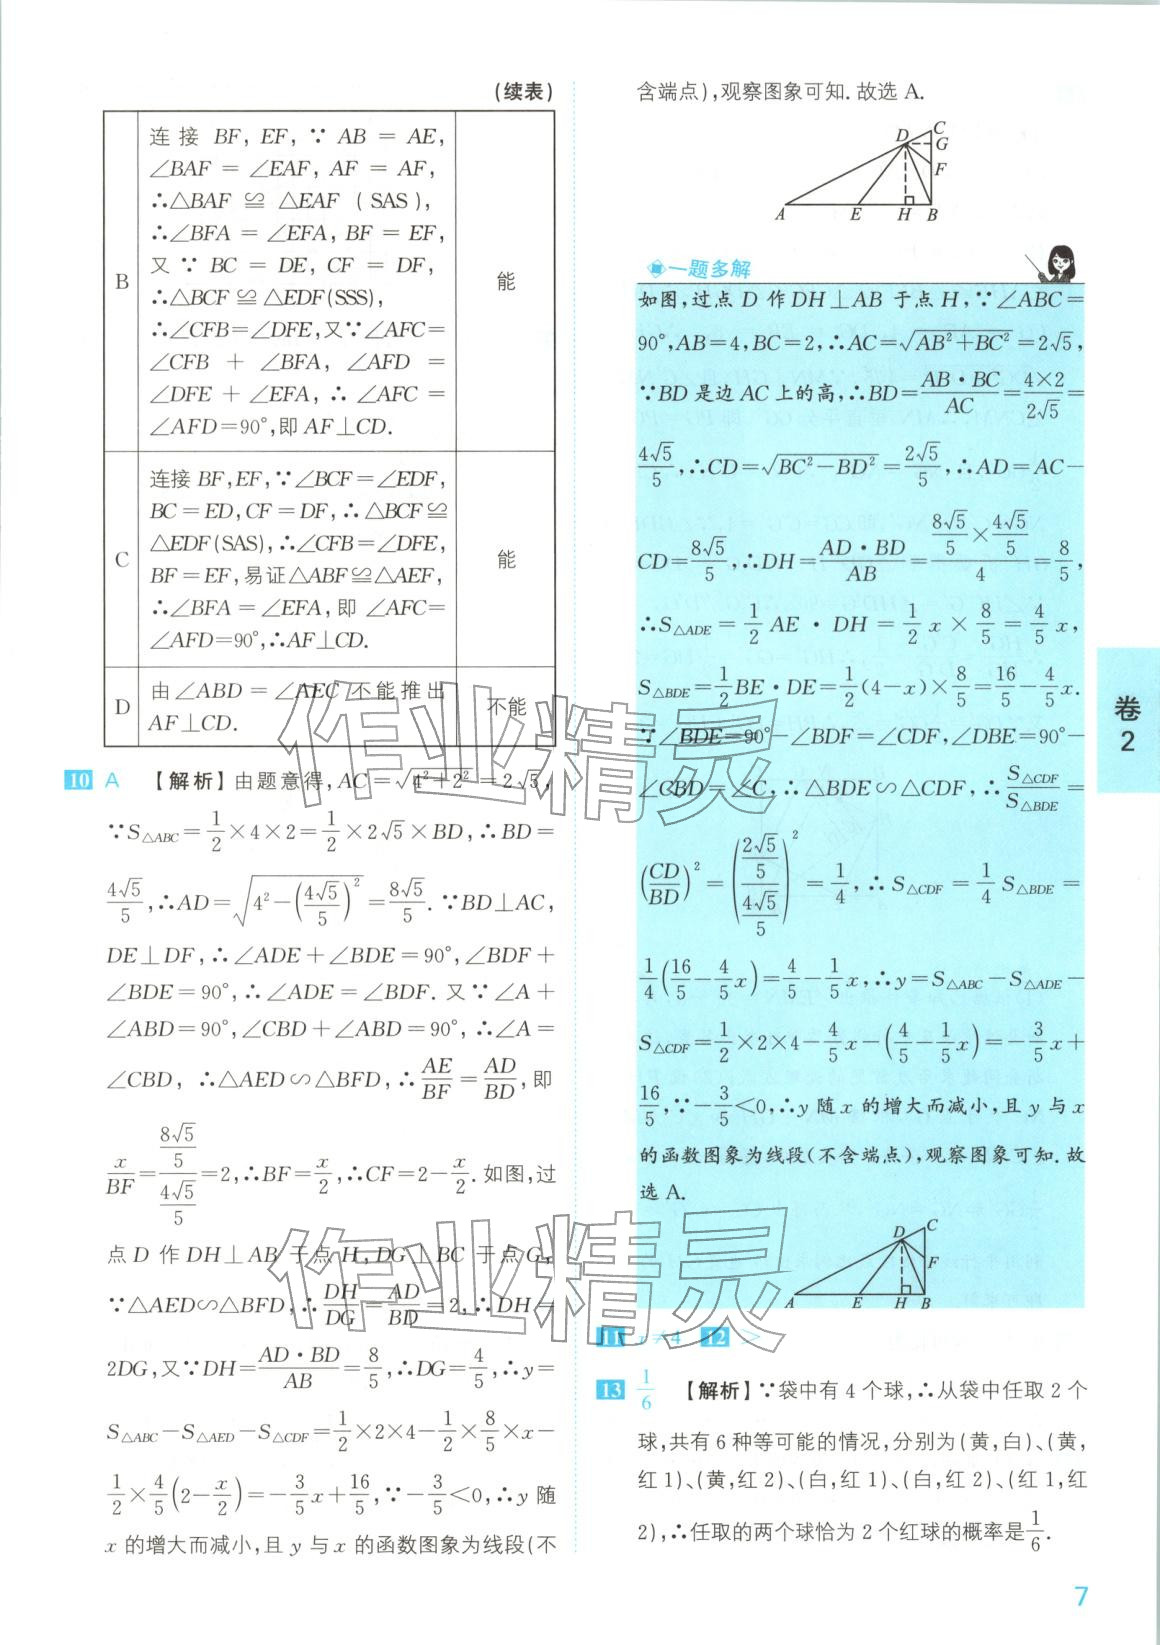 (续表)
B
连接 BF, EF, ∵ AB = AE,
∠BAF = ∠EAF, AF = AF,
∴△BAF ≌ △EAF ( SAS),
∴∠BFA = ∠EFA, BF = EF,
又 ∵ BC = DE, CF = DF,
∴△BCF≌△EDF(SSS),
∴∠CFB=∠DFE,又∵∠AFC=
∠CFB + ∠BFA, ∠AFD =
∠DFE + ∠EFA, ∴ ∠AFC =
∠AFD=90°,即 AF⊥CD.
能
C
连接 BF,EF,∵∠BCF=∠EDF,
BC=ED,CF=DF,∴△BCF≌
△EDF(SAS),∴∠CFB=∠DFE,
BF=EF,易证△ABF≌△AEF,
∴∠BFA=∠EFA,即 ∠AFC=
∠AFD=90°,∴AF⊥CD.
能
D
由∠ABD=∠AEC 不能推出
AF⊥CD.
不能
10 A 【解析】由题意得,AC=√(4²+2²)=2√5,
∵S△ABC=1/2×4×2=1/2×2√5×BD,∴BD=
4√5/5,∴AD=√(4²-(4√5/5)²)=8√5/5.∵BD⊥AC,
DE⊥DF,∴∠ADE+∠BDE=90°,∠BDF+
∠BDE=90°,∴∠ADE=∠BDF.又∵∠A+
∠ABD=90°,∠CBD+∠ABD=90°,∴∠A=
∠CBD, ∴△AED∽△BFD,∴AE/BF=AD/BD,即
x/BF=(8√5/5)/(4√5/5)=2,∴BF=x/2,∴CF=2-x/2.如图,过
点 D 作 DH⊥AB 于点 H,DG⊥BC 于点 G,
∵△AED∽△BFD,∴DH/DG=AD/BD=2,∴DH=
2DG,又∵DH=AD·BD/AB=8/5,∴DG=4/5,∴y=
S△ABC-S△AED-S△CDF=1/2×2×4-1/2×8/5×x-
1/2×4/5(2-x/2)=-3/5x+16/5,∵-3/5<0,∴y 随
x 的增大而减小,且 y 与 x 的函数图象为线段(不
含端点),观察图象可知.故选 A.
A E H B D C G F
一题多解
如图,过点 D 作 DH⊥AB 于点 H,∵∠ABC=
90°,AB=4,BC=2,∴AC=√(AB²+BC²)=2√5,
∵BD 是边 AC 上的高,∴BD=AB·BC/AC=4×2/2√5=
4√5/5,∴CD=√(BC²-BD²)=2√5/5,∴AD=AC-
CD=8√5/5,∴DH=AD·BD/AB=(8√5/5×4√5/5)/4=8/5,
∴S△ADE=1/2 AE·DH=1/2 x×8/5=4/5 x,
S△BDE=1/2BE·DE=1/2(4-x)×8/5=16/5-4/5x.
∵∠BDE=90°-∠BDF=∠CDF,∠DBE=90°-
∠CBD=∠C,∴△BDE∽△CDF,∴S△CDF/S△BDE=
(CD/BD)²=((2√5/5)/(4√5/5))²=1/4,∴S△CDF=1/4 S△BDE=
1/4(16/5-4/5x)=4/5-1/5x,∴y=S△ABC-S△ADE-
S△CDF=1/2×2×4-4/5x-(4/5-1/5x)=-3/5x+
16/5,∵-3/5<0,∴y 随 x 的增大而减小,且 y 与 x
的函数图象为线段(不含端点),观察图象可知.故
选 A.
A E H B D C F
11 x≠4 12 >
13 1/6 【解析】∵袋中有 4 个球,∴从袋中任取 2 个
球,共有 6 种等可能的情况,分别为(黄,白)、(黄,
红 1)、(黄,红 2)、(白,红 1)、(白,红 2)、(红 1,红
2),∴任取的两个球恰为 2 个红球的概率是1/6.
卷
2
7
作业精灵
作业精灵